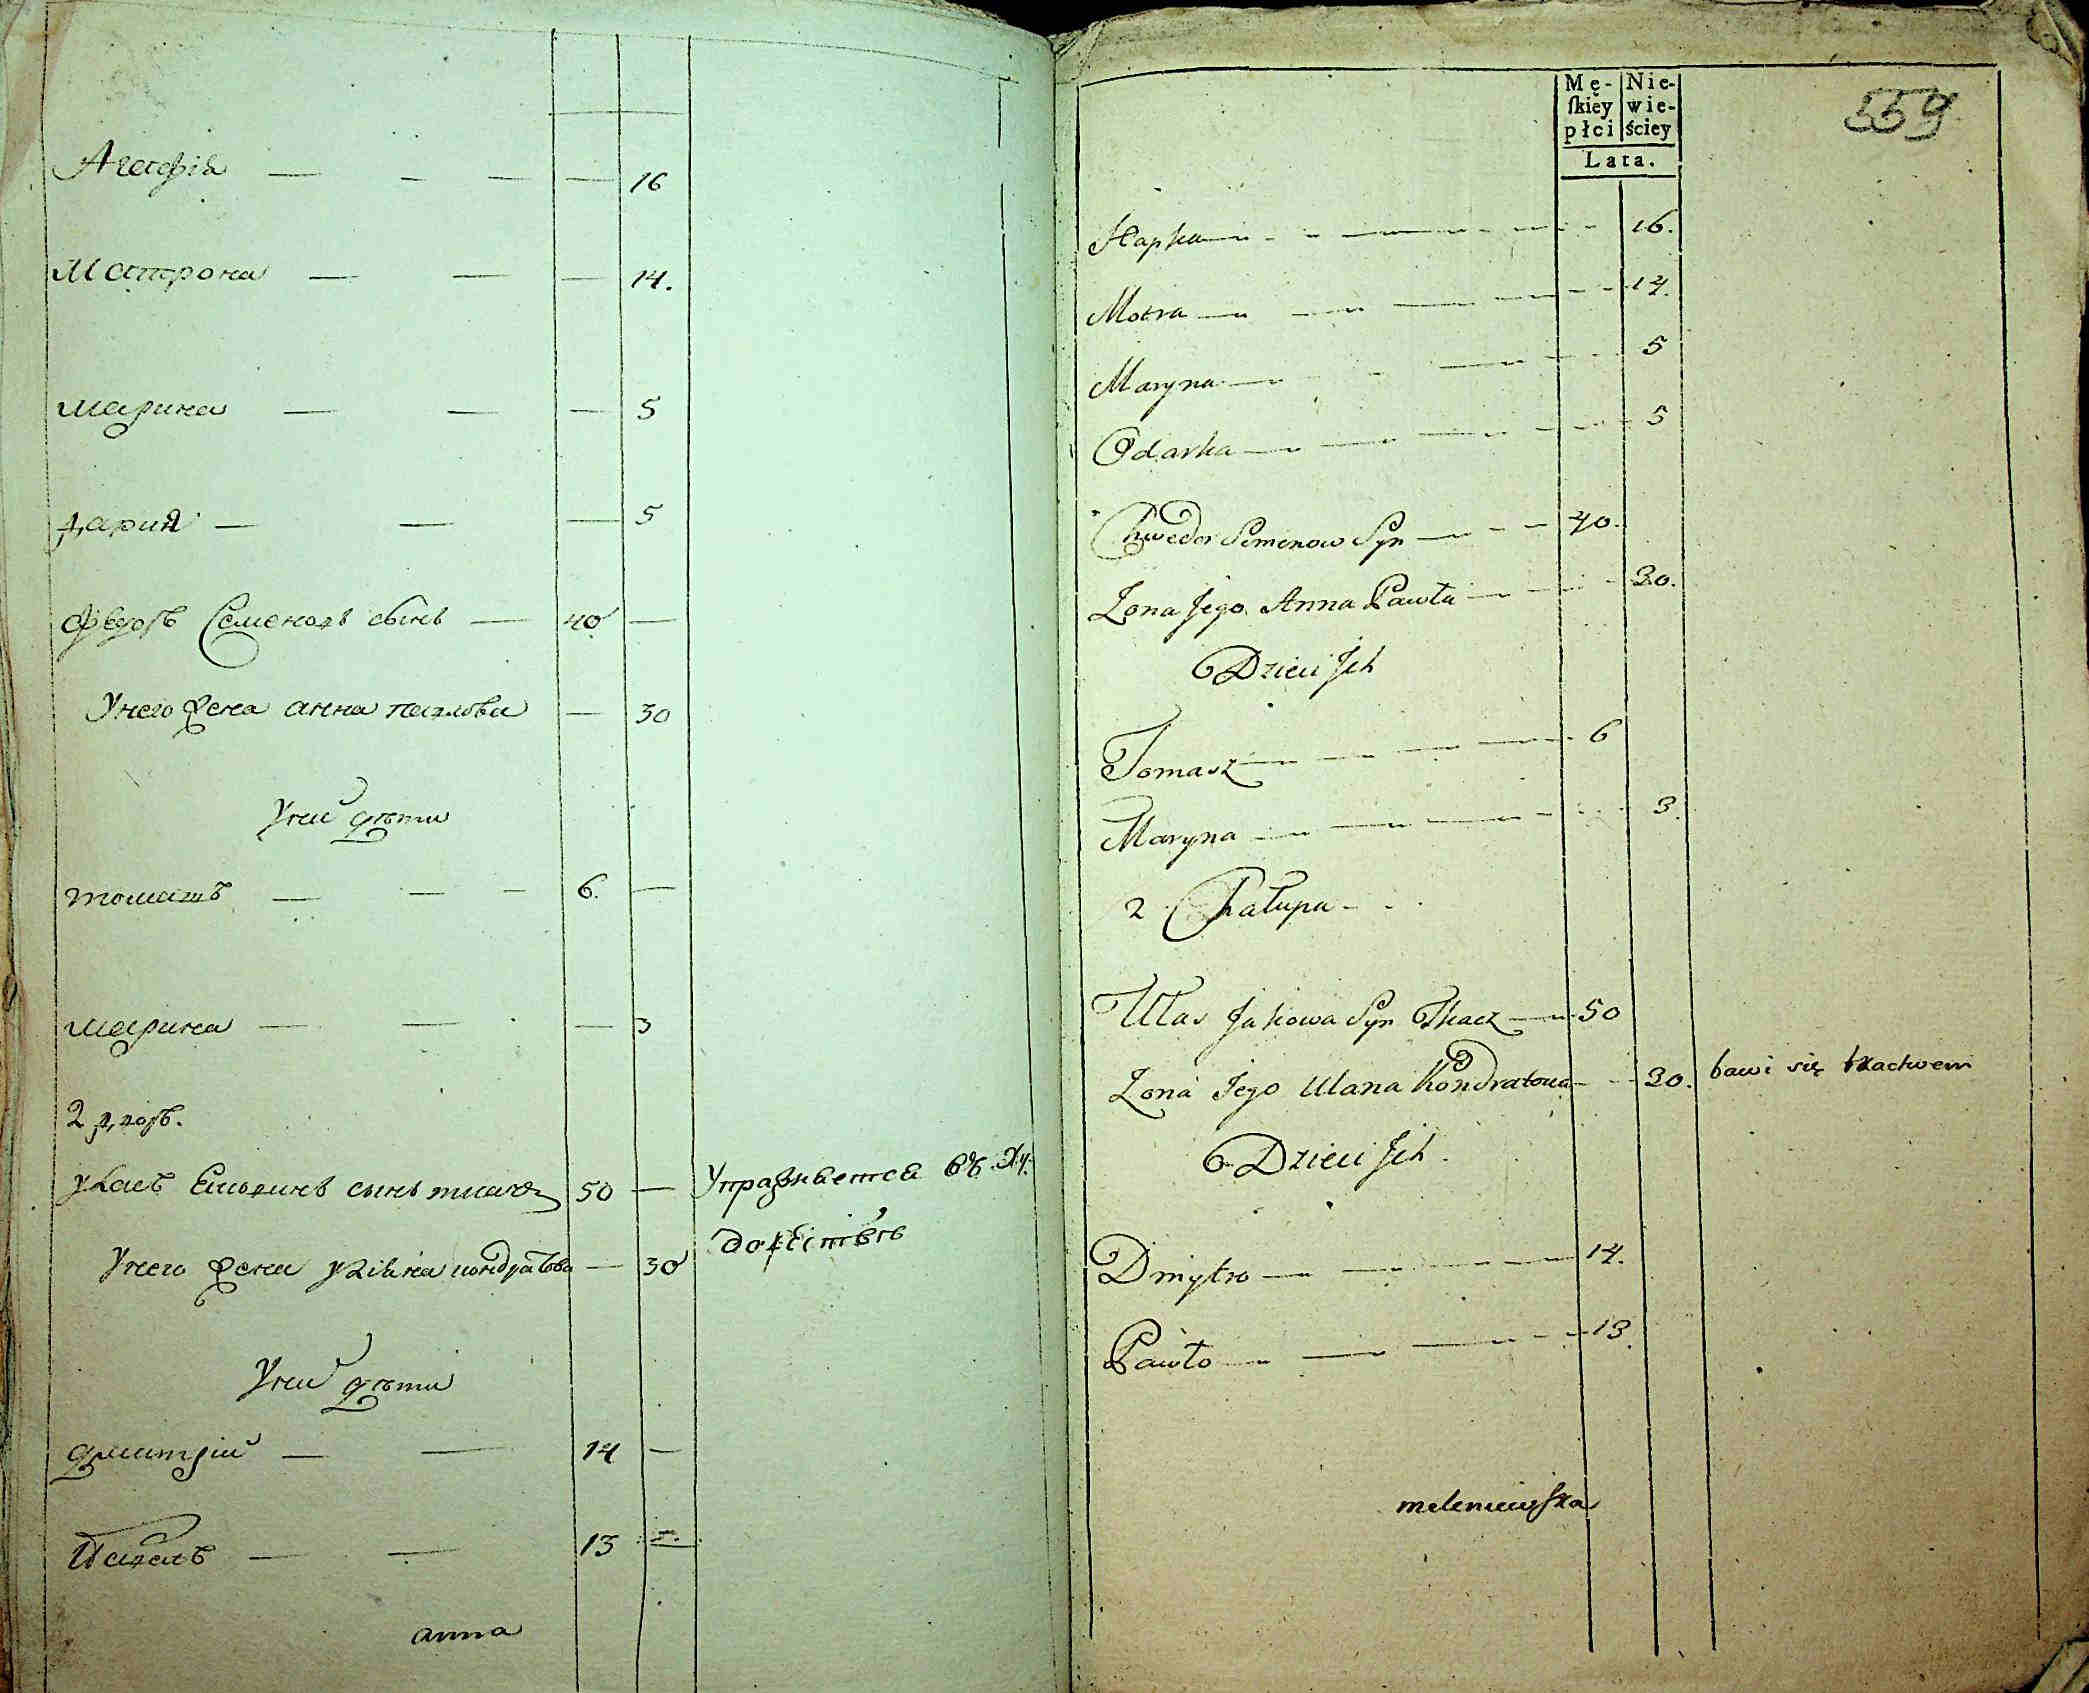 Агафія — — — — 16
Матрона — — — 14.
Марина — — — 5
Дария — — — 5
Федоръ Семеновъ сынъ — 40 —
У него жена Анна Павлова — 30
У них дѣти
Томашъ — — — 6. —
Марина — — — 3
2 Дворъ.
Улас сынъ ткачъ 50 — Упражняется въ
У него жена Уліана Кондратова — 30
У них дѣти
Дмитрій — — 14 —
Павелъ — — 13
анна
559
Mę-skiey płci | Nie-wie-ściey
Lata.
Hapka — 16.
Motra — 14.
Maryna — 5
Odarka — 5
Chwedor Semenow Syn — 40.
Zona Jego Anna Pawła — 30.
Dzieci Jch
Tomasz — 6
Maryna — 3.
2 Chałupa
Ułas Jakowa Syn Tkacz — 50
Zona Jego Ulana Kondratowa — 30. bawi się tkactwem
Dzieci Jch
Dmytro — 14.
Pawło — 13.